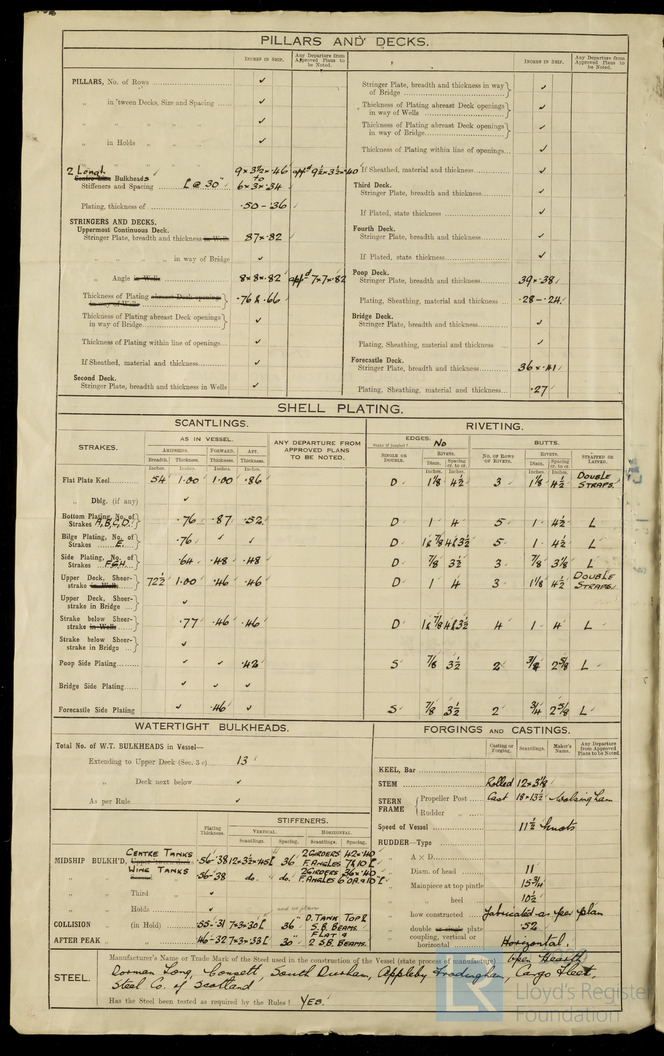 PILLARS AND DECKS.
INCHES IN SHIP.
Any Departure from Approved Plans to be Noted.
PILLARS, No. of Rows ✓
„ in 'tween Decks, Size and Spacing ✓
„ „ „ „ ✓
„ in Holds „ „ ✓
„ „ „ „
2 Longl.
Centre Line Bulkheads 9 x 3½ x .46 appd 9½ x 3½ x .40
to
Stiffeners and Spacing L @ 30" 6 x 3 x .34
Plating, thickness of .50 - .36
STRINGERS AND DECKS.
Uppermost Continuous Deck.
Stringer Plate, breadth and thickness in Wells 87 x .82
„ „ „ in way of Bridge ✓
„ Angle in Wells 8 x 8 x .82 appd 7 x 7 x .82
Thickness of Plating abreast Deck openings in way of Wells .76 & .66
Thickness of Plating abreast Deck openings in way of Bridge ✓
Thickness of Plating within line of openings ✓
If Sheathed, material and thickness ✓
Second Deck.
Stringer Plate, breadth and thickness in Wells ✓
INCHES IN SHIP.
Any Departure from Approved Plans to be Noted.
Stringer Plate, breadth and thickness in way of Bridge ✓
Thickness of Plating abreast Deck openings in way of Wells ✓
Thickness of Plating abreast Deck openings in way of Bridge ✓
Thickness of Plating within line of openings ✓
If Sheathed, material and thickness ✓
Third Deck.
Stringer Plate, breadth and thickness ✓
If Plated, state thickness ✓
Fourth Deck.
Stringer Plate, breadth and thickness ✓
If Plated, state thickness ✓
Poop Deck.
Stringer Plate, breadth and thickness 39 x .38
Plating, Sheathing, material and thickness .28 - .24
Bridge Deck.
Stringer Plate, breadth and thickness ✓
Plating, Sheathing, material and thickness ✓
Forecastle Deck.
Stringer Plate, breadth and thickness 36 x .41
Plating, Sheathing, material and thickness .27
SHELL PLATING.
SCANTLINGS.
RIVETING.
STRAKES.
AS IN VESSEL.
AMIDSHIPS. FORWARD. AFT.
Breadth. Thickness. Thickness. Thickness.
Inches. Inches. Inches. Inches.
ANY DEPARTURE FROM APPROVED PLANS TO BE NOTED.
EDGES. No
BUTTS.
SINGLE OR DOUBLE.
RIVETS.
Diam. Spacing cr. to cr.
No. OF ROWS OF RIVETS.
RIVETS.
Diam. Spacing cr. to cr.
STRAPPED OR LAPPED.
Flat Plate Keel 54 1.00 1.00 .86 D 1⅛ 4½ 3 1⅛ 4½ DOUBLE STRAPS.
„ Dblg. (if any) ✓
Bottom Plating, No. of Strakes A,B,C,D. .76 .87 .52 D 1 4 5 1 4½ L
Bilge Plating, No. of Strakes E. .76 ✓ ✓ D 1 & ⅞ 4 & 3½ 5 1 4½ L
Side Plating, No. of Strakes F.G.H. .64 .48 .48 D ⅞ 3½ 3 ⅞ 3⅛ L
Upper Deck, Sheerstrake in Wells 72½ 1.00 .46 .46 D 1 4 3 1⅛ 4½ DOUBLE STRAPS
Upper Deck, Sheerstrake in Bridge ✓
Strake below Sheerstrake in Wells .77 .46 .46 D 1 & ⅞ 4 & 3½ 4 1 4 L
Strake below Sheerstrake in Bridge ✓
Poop Side Plating ✓ .42 S ⅞ 3½ 2 ¾ 2⅝ L
Bridge Side Plating ✓ ✓ ✓
Forecastle Side Plating ✓ .46 ✓ S ⅞ 3½ 2 ¾ 2⅝ L
WATERTIGHT BULKHEADS.
Total No. of W.T. BULKHEADS in Vessel—
Extending to Upper Deck (Sec. 3 c) 13
„ Deck next below ✓
As per Rule ✓
STIFFENERS.
Plating Thickness.
VERTICAL. HORIZONTAL.
Scantlings. Spacing. Scantlings. Spacing.
MIDSHIP BULKH'D, CENTRE TANKS .56-.38 12 x 3½ x .45 L 36 2 GIRDERS 42 x .40
F. ANGLES 7 x .10 L
WING TANKS .56-.38 do. do. 2 GIRDERS 36 x .40
„ Third „ ✓
„ Holds „ ✓
COLLISION „ (in Hold) .55-.31 7 x 3 x .30 L 36" D. TANK TOP & S.B. BEAMS.
AFTER PEAK „ .46-.32 7 x 3 x .33 L 30" FLAT & 2 S.B. BEAMS.
FORGINGS AND CASTINGS.
Casting or Forging. Scantlings. Maker's Name. Any Departure from Approved Plans to be Noted.
KEEL, Bar
STEM Rolled 12 x 3⅛
STERN FRAME Propeller Post Cast 18 x 13½ Wolsingham
Rudder „
Speed of Vessel 11½ knots
RUDDER—Type
„ A x D
„ Diam. of head 11
„ Mainpiece at top pintle 15¾
„ „ heel 10½
„ how constructed Fabricated as per plan
„ double or single plate .52
„ coupling, vertical or horizontal Horizontal.
STEEL.
Manufacturer's Name or Trade Mark of the Steel used in the construction of the Vessel (state process of manufacture) Open Hearth
Dorman Long, Consett, South Durham, Appleby Frodingham, Cargo Fleet,
Steel Co. of Scotland
Has the Steel been tested as required by the Rules? YES.
LR
Lloyd's Register
Foundation